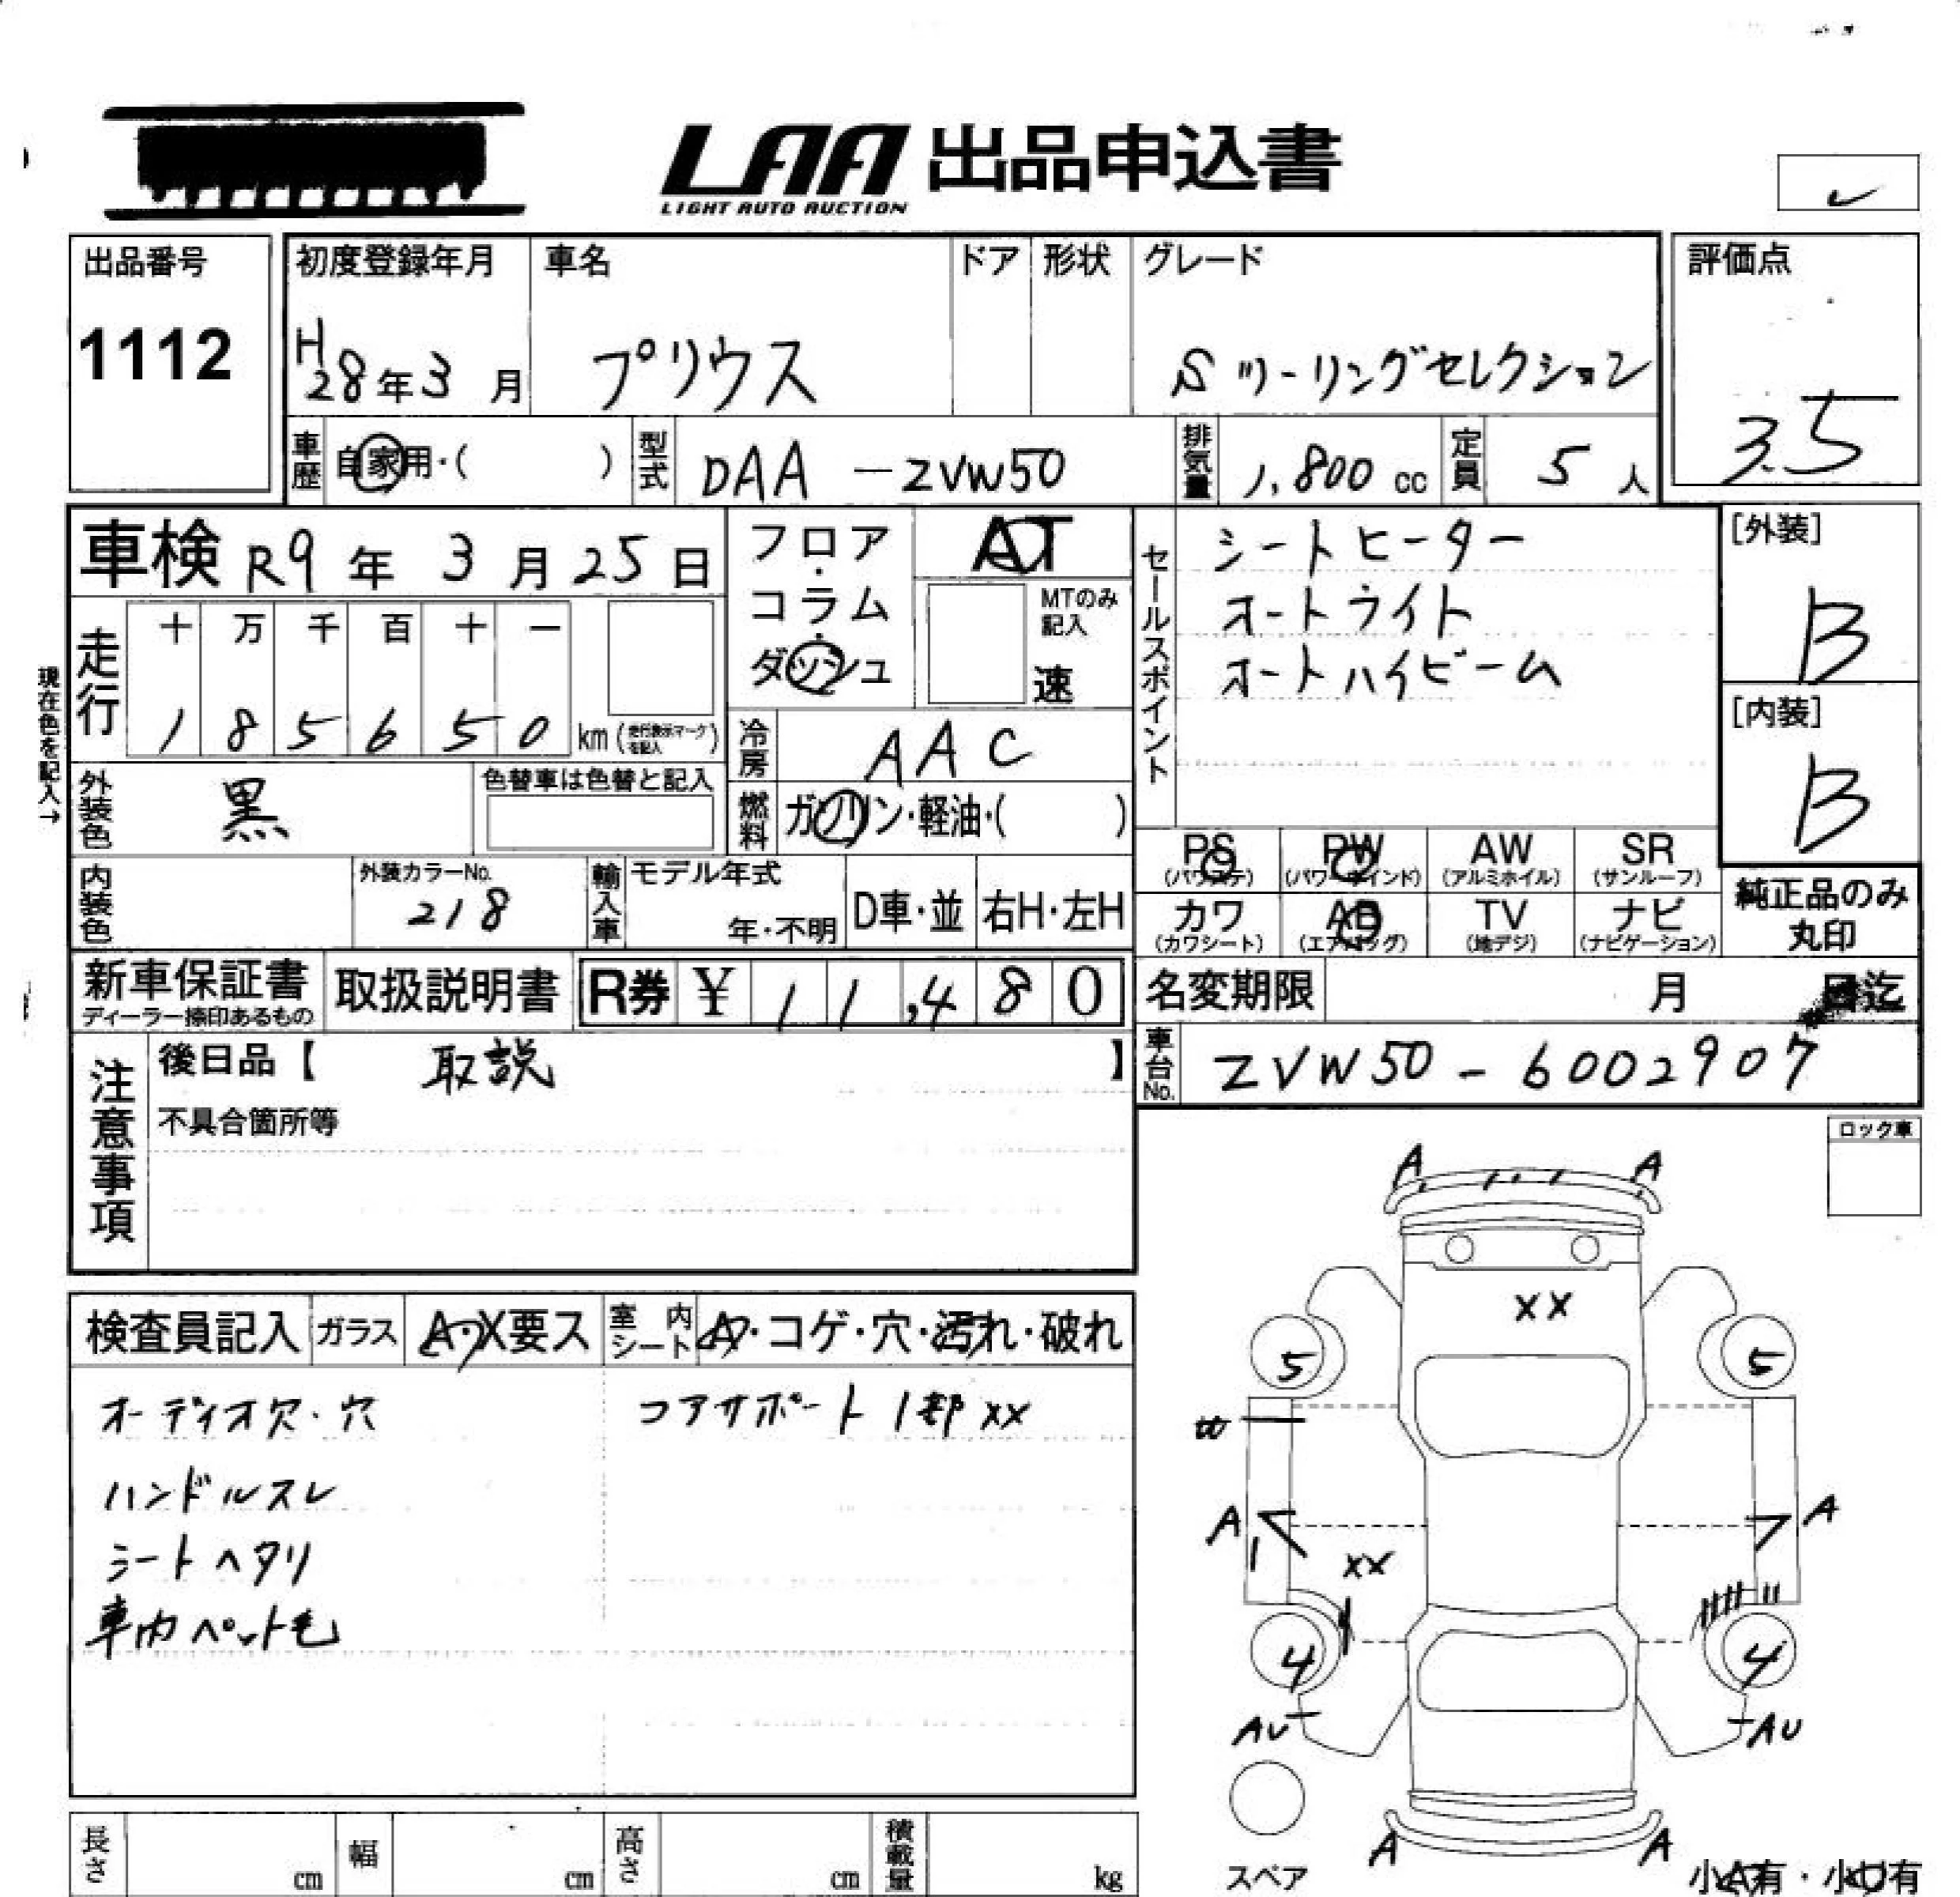 LAA 出品申込書
LIGHT AUTO AUCTION
出品番号
1112
初度登録年月
H28年3月
車名
プリウス
ドア
形状
グレード
Sツーリングセレクション
評価点
3.5
車歴
自家用・( )
型式
DAA-ZVW50
排気量
1,800 cc
定員
5人
車検 R9年3月25日
フロア・コラム・ダッシュ
AT
MTのみ記入
速
セールスポイント
シートヒーター
オートライト
オートハイビーム
[外装]
B
[内装]
B
現在色を記入→
走行
十 万 千 百 十 一
1 8 5 6 5 0 km(走行表示マークを記入)
冷房
AAC
外装色
黒
色替車は色替と記入
燃料
ガソリン・軽油・( )
PS
(パワステ)
PW
(パワーウインド)
AW
(アルミホイル)
SR
(サンルーフ)
内装色
外装カラーNo.
218
輸入車
モデル年式
年・不明
D車・並
右H・左H
カワ
(カワシート)
AB
(エアバッグ)
TV
(地デジ)
ナビ
(ナビゲーション)
純正品のみ
丸印
新車保証書
ディーラー捺印あるもの
取扱説明書
R券 ¥ 11,480
名変期限
月 日迄
注意事項
後日品【 取説 】
不具合箇所等
車台No.
ZVW50-6002907
ロック車
検査員記入
ガラス
A・X要ス
室内シート
A・コゲ・穴・汚れ・破れ
オーディオ欠・穴
コアサポート1部XX
ハンドルスレ
シートヘタリ
車内ペット毛
A A
XX
5 5
W
A A
XX
4 4
AU AU
A A
スペア
小A有・小U有
長さ cm
幅 cm
高さ cm
積載量 kg